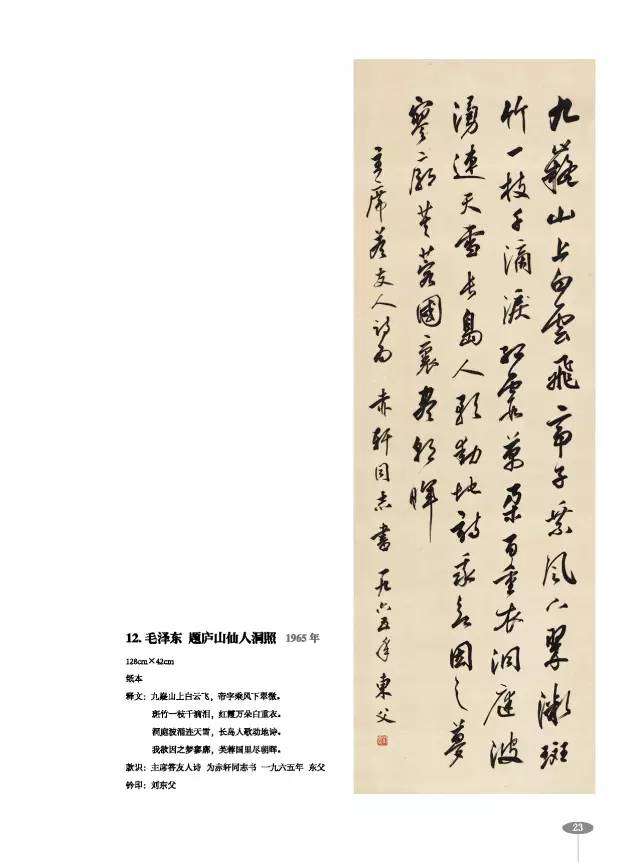 九嶷山上白雲飛帝子乘風下翠微斑
竹一枝千滴淚紅霞萬朵百重衣洞庭波
湧連天雪長島人歌動地詩我欲因之夢
寥廓芙蓉國裏盡朝暉
主席答友人詩為 赤軒同志書 一九六五年 東父
12. 毛泽东 题庐山仙人洞照 1965 年
128cm×42cm
纸本
释文：九嶷山上白云飞，帝字乘风下翠微。
斑竹一枝千滴泪，红霞万朵白重衣。
洞庭波涌连天雪，长岛人歌动地诗。
我欲因之梦寥廓，芙蓉国里尽朝晖。
款识：主席答友人诗 为赤轩同志书 一九六五年 东父
钤印：刘东父
23